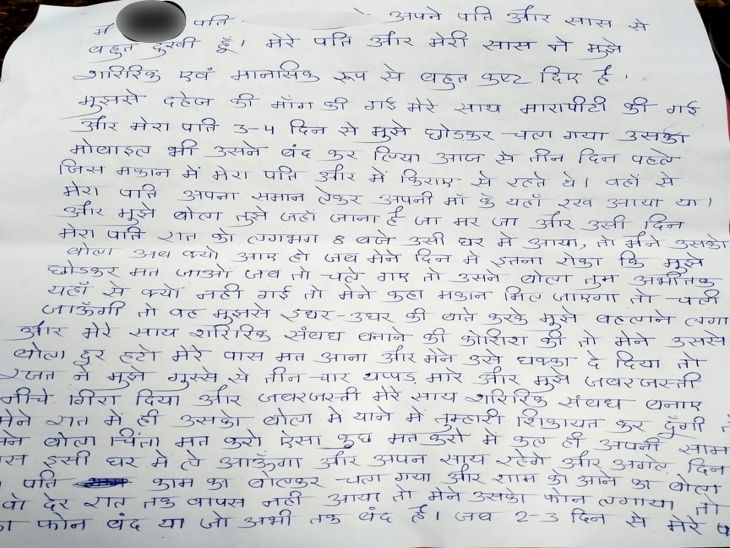 मैं पति अपने पति और सास से
बहुत दुखी हूँ। मेरे पति और मेरी सास ने मुझे
शारिरिक एवं मानसिक रूप से बहुत कष्ट दिए है।
मुझसे दहेज की माँग की गई मेरे साथ मारापीटी की गई
और मेरा पति 3-4 दिन से मुझे छोडकर चला गया उसका
मोबाइल भी उसने बंद कर लिया आज से तीन दिन पहले
जिस मकान में मेरा पति और में किराए से रहते थे। वहाँ से
मेरा पति अपना समान लेकर अपनी माँ के यहाँ रख आया था।
और मुझे बोला तुझे जहाँ जाना है जा मर जा और उसी दिन
मेरा पति रात को लगभग 8 बजे उसी घर में आया, तो मैंने उसको
बोला अब क्यो आए हो जब मेने दिन में इतना रोका कि मुझे
छोडकर मत जाओ जब तो चले गए तो उसने बोला तुम अभीतक
यहाँ से क्यो नही गई तो मेने कहा मकान मिल जाएगा तो चली
जाऊँगी तो वह मुझसे इधर-उधर की बाते करके मुझे बहलाने लगा
और मेरे साथ शारिरिक संबध बनाने की कोशिश की तो मेने उससे
बोला दूर हटो मेरे पास मत आना और मेंने उसे धक्का दे दिया तो
रजत ने मुझे गुस्से से तीन-चार थप्पड मारे और मुझे जबरजस्ती
नीचे गिरा दिया और जबरजस्ती मेरे साथ शारिरिक संबध बनाए
मेने रात में ही उसको बोला मे थाने में तुम्हारी शिकायत कर दूँगी
बोला चिंता मत करो ऐसा कुछ मत करो मे कल ही अपनी साम
इसी घर मे ले आऊँगा और अपन साथ रहेगे और अगले दिन
पति काम का बोलकर चला गया और शाम को आने का बोला
देर रात तक वापस नही आया तो मेने उसको फोन लगाया तो
फोन बंद था जो अभी तक बंद है। जब 2-3 दिन से मेरे